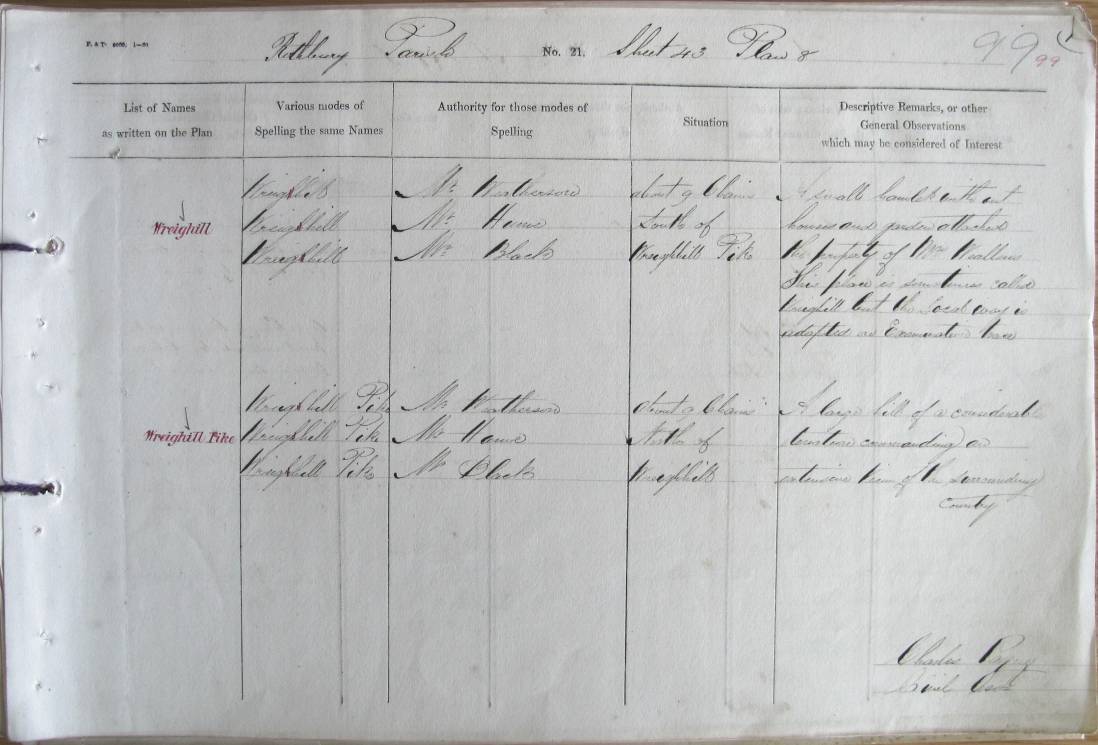 Rothbury Parish No. 21. Sheet 43 Plan 8 99 99
List of Names
as written on the Plan
Various modes of
Spelling the same Names
Authority for those modes of
Spelling
Situation
Descriptive Remarks, or other
General Observations
which may be considered of Interest
Wreighill
Wreighill
Wreighill
Wreighill
Mr. Weatherson
Mr. Hume
Mr. Black
about 9 Chains
South of
Wreighhill Pike
A small hamlet with out
houses and garden attached
the property of Mrs
This place is sometimes called
Wreighill but the Local way is
adopted on Examination trace
Wreighill Pike
Wreighill Pike
Wreighill Pike
Wreighill Pike
Mr. Weatherson
Mr. Hume
Mr. Black
about 9 Chains
North of
Wreighhill
A large hill of a considerable
elevation commanding an
extensive view of the surrounding
Country
Charles
Civil Asst